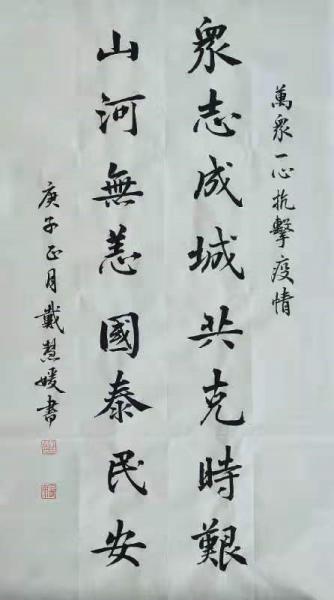 萬衆一心抗擊疫情
衆志成城共克時艱
山河無恙國泰民安
庚子正月戴慧媛書